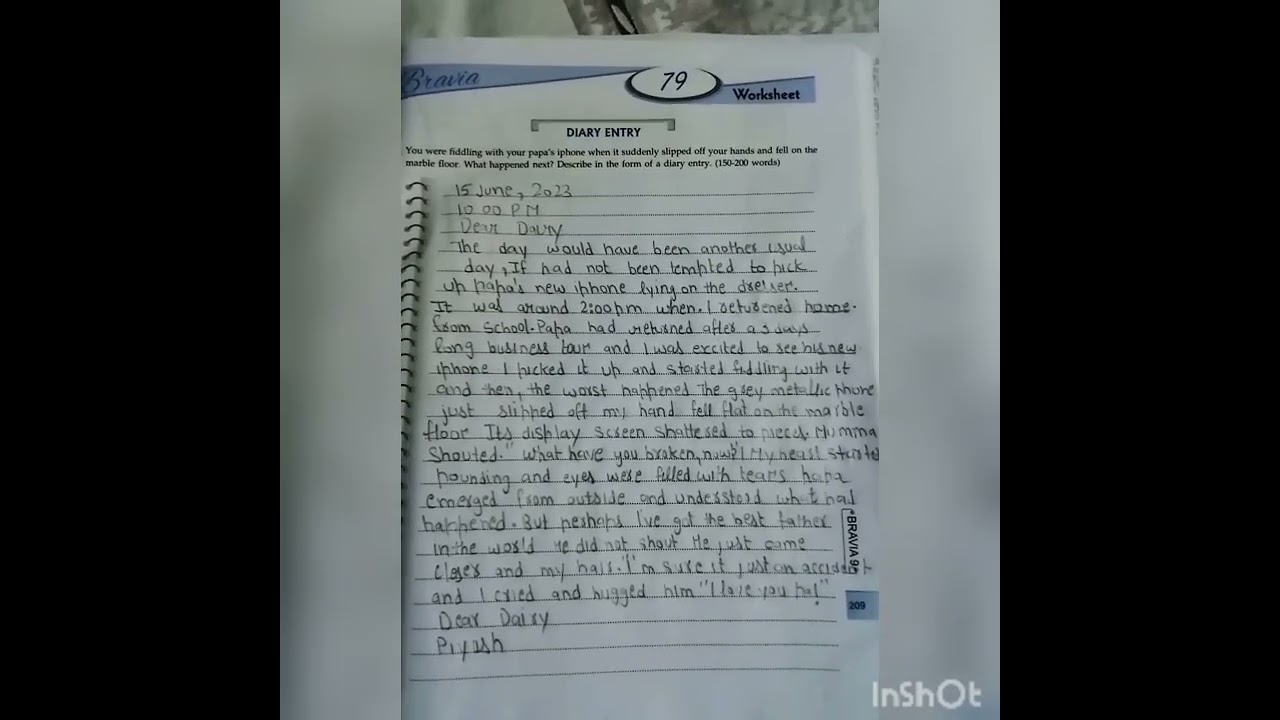 Bravia
79
Worksheet
DIARY ENTRY
You were fiddling with your papa's iphone when it suddenly slipped off your hands and fell on the
marble floor. What happened next? Describe in the form of a diary entry. (150-200 words)
15 June, 2023
10:00 PM
Dear Dairy
The day would have been another usual
day, If had not been tempted to pick
up papa's new iphone lying on the dresser.
It was around 2:00pm when. I returened home.
from school. Papa had returned after a 3 days
long business tour and I was excited to see his new
iphone I picked it up and started fiddling with it
and then, the worst happened The grey metallic phone
just slipped off my hand fell flat on the marble
floor Its display screen shattered to pieces. Mumma
shouted." What have you broken, now?! My heart started
pounding and eyes were filled with tears papa
emerged from outside and understood what had
happened. But perhaps I've got the best father
in the world He did not shout He just came
closer and my hair. I'm sure it just an accident
and I cried and hugged him "I love you pa!"
Dear Dairy
Piyush
BRAVIA 9
209
InShOt